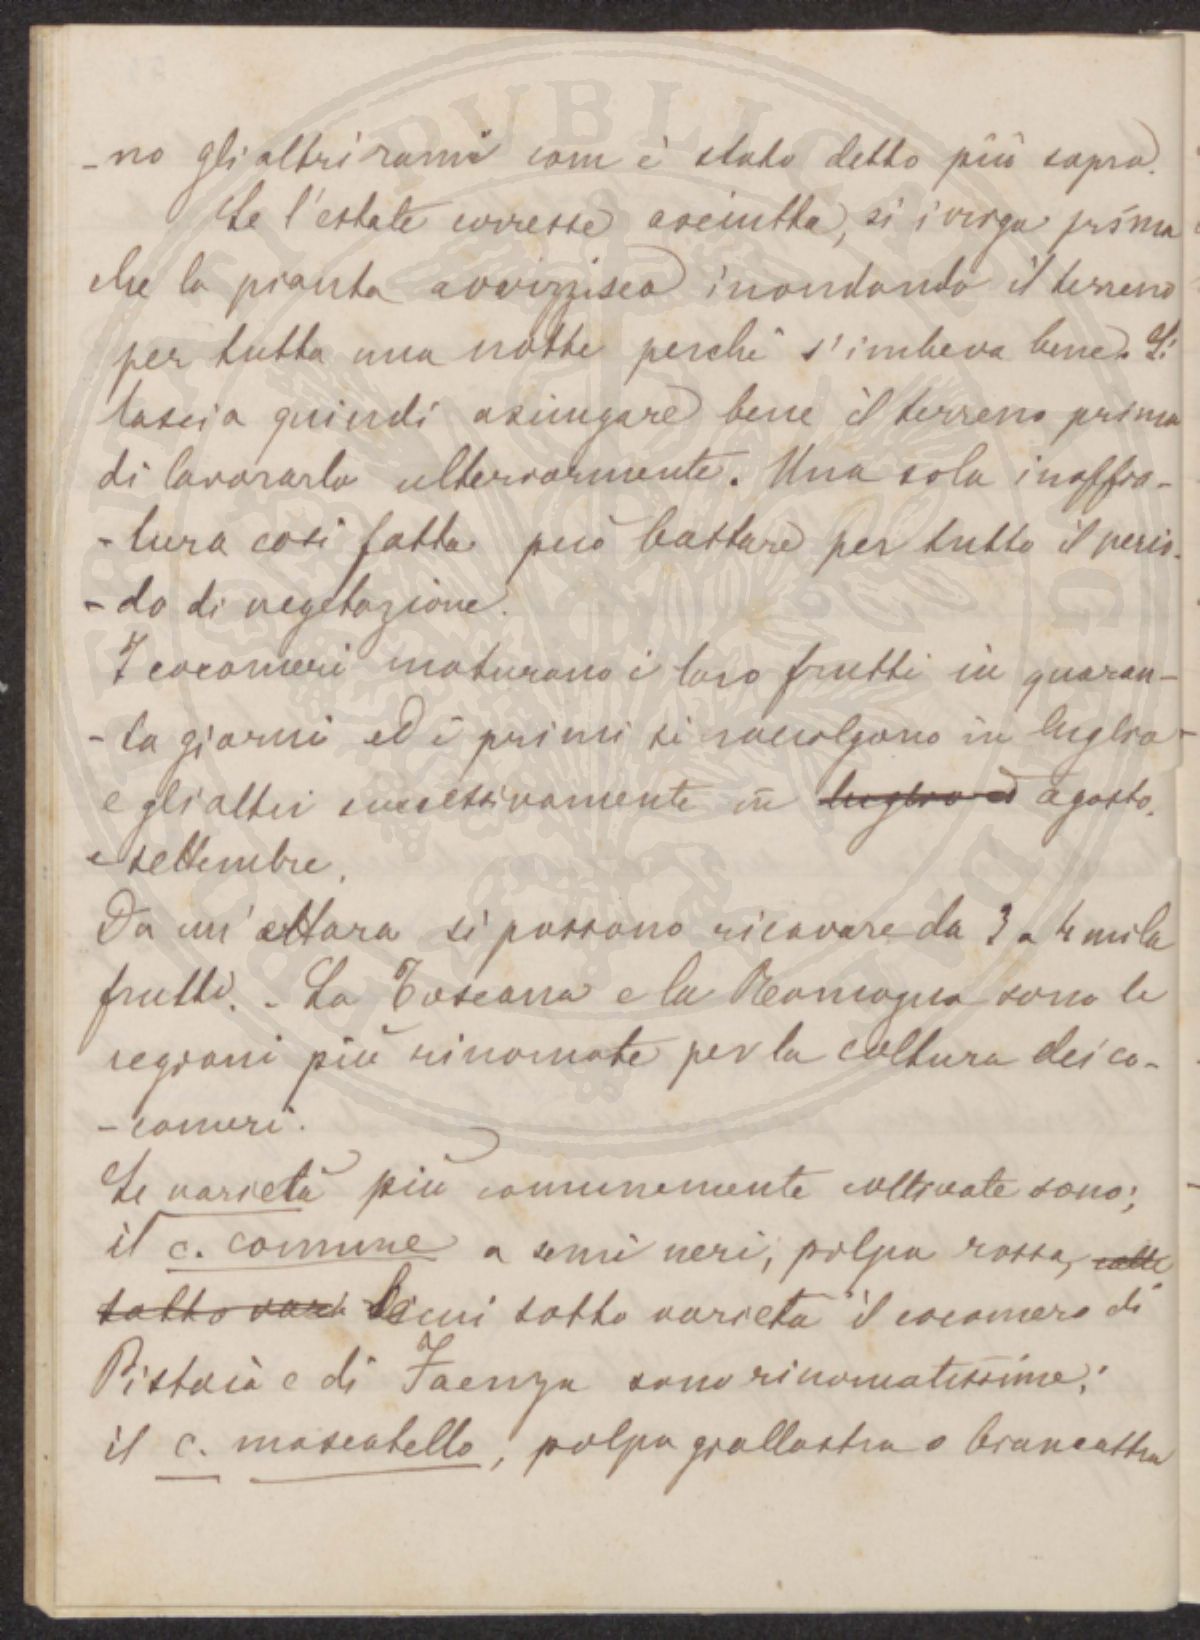 -no gli altri rami com è stato detto più sopra.
Se l'estate corresse asciutta, si irriga prima
che la pianta avvizzisca inondando il terreno
per tutta una notte perchè s'imbeva bene. Si
lascia quindi asciugare bene il terreno prima
di lavorarlo ulteriormente. Una sola inaffia-
-tura cosi fatta può bastare per tutto il perio-
-do di vegetazione.
I cocomeri maturano i loro frutti in quaran-
-ta giorni ed i primi si raccolgono in luglio
e gli altri successivamente in luglio ed agosto,
e settembre.
Da un'ettara si possono ricavare da 3 a 4 mila
frutti. - La Toscana e la Romagna sono le
regioni più rinomate per la coltura dei co-
-comeri.
Le varietà più comunemente coltivate sono;
il c. comune a semi neri, polpa rossa,
sotto di cui sotto varietà il cocomero di
Pistoia e di Faenza sono rinomatissime;
il c. moscatello, polpa giallastra o biancastra